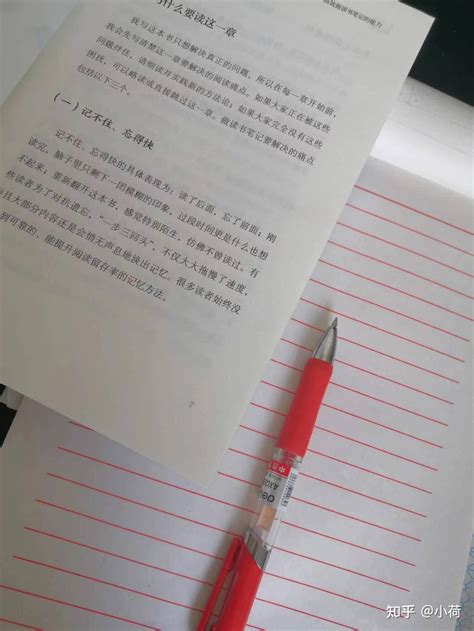 高效做读书笔记的能力
什么要读这一章
我写这本书只想解决真正的问题，所以在每一章开始前，
我会先写清楚这一章要解决的阅读痛点。如果大家正在被这些
问题绊住，请细读并实践新的方法论；如果大家完全没有这些
困扰，可以略读或直接跳过这一章。做读书笔记要解决的痛点
包括以下三个。
（一）记不住、忘得快
记不住、忘得快的具体表现为：读了后面，忘了前面；刚
读完，脑子里只剩下一团模糊的印象，过段时间更是什么也想
不起来；重新翻开这本书，感觉特别陌生，仿佛不曾读过。有
些读者为了对抗遗忘，“一步三回头”，不仅大大拖慢了速度，
且大部分内容还是会悄无声息地淡出记忆。很多读者始终没
到可靠的、能提升阅读留存率的记忆方法。
7
deli
知乎 @小荷